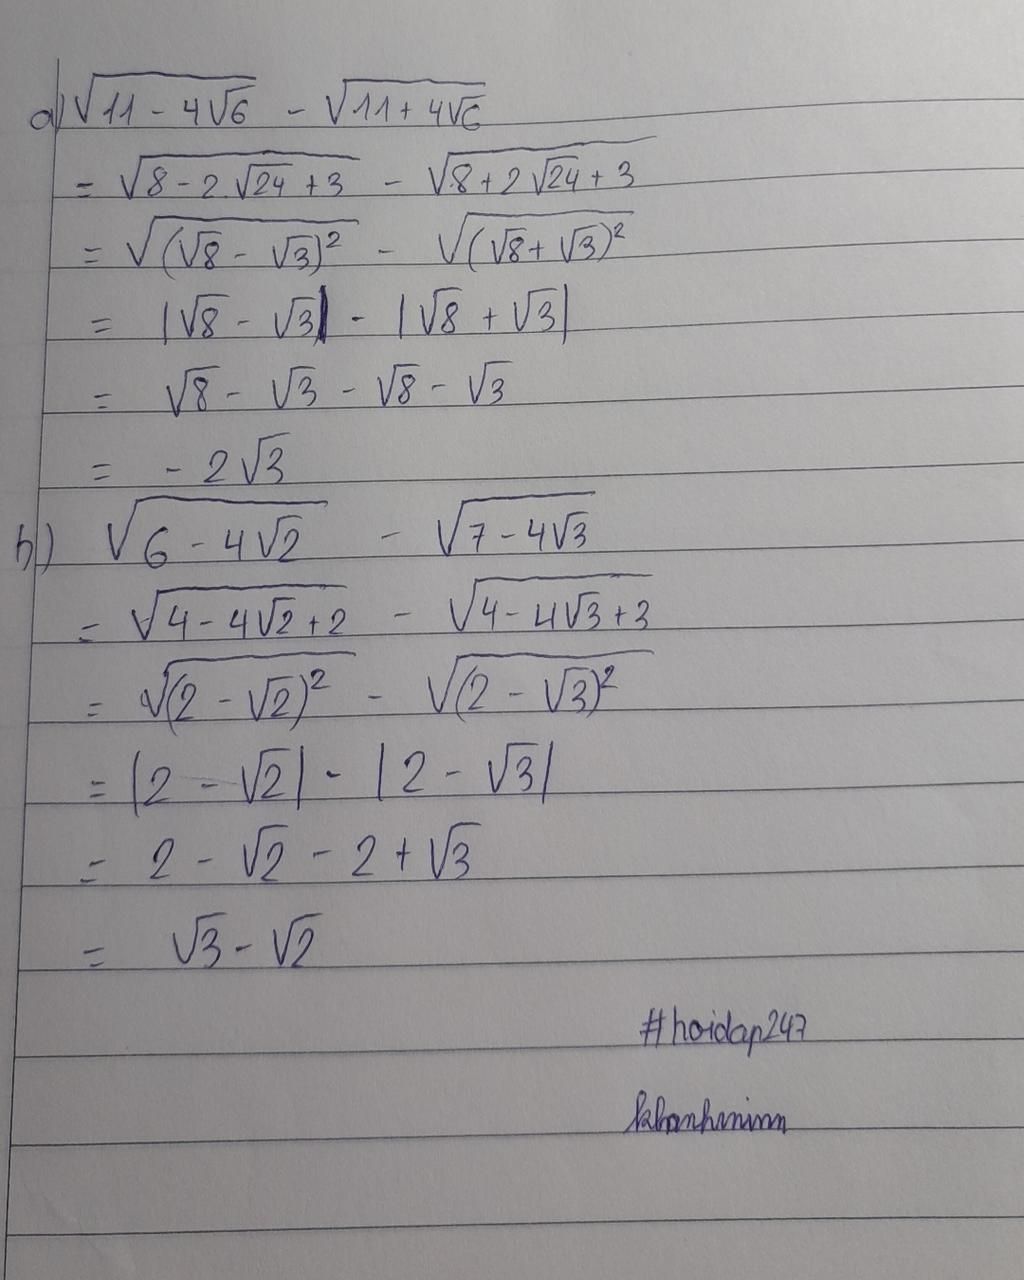 a) √(11 - 4√6) - √(11 + 4√6)
= √(8 - 2.√24 + 3) - √(8 + 2√24 + 3)
= √((√8 - √3)²) - √((√8 + √3)²)
= |√8 - √3| - |√8 + √3|
= √8 - √3 - √8 - √3
= - 2√3
b) √(6 - 4√2) - √(7 - 4√3)
= √(4 - 4√2 + 2) - √(4 - 4√3 + 3)
= √((2 - √2)²) - √((2 - √3)²)
= |2 - √2| - |2 - √3|
= 2 - √2 - 2 + √3
= √3 - √2
#hoidap247